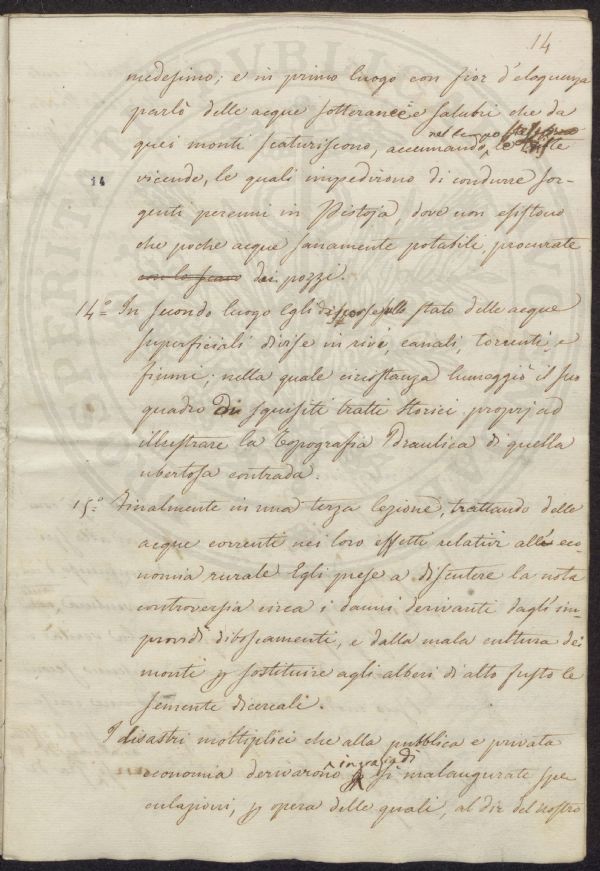 14
medesimo; e in primo luogo con fior d'eloquenza
parlò delle acque sotterranee e salubri che da
quei monti scaturiscono, accennando nel tempo stesso le
14
vicende, le quali impedirono di condurre sor-
genti perenni in Pistoja, dove non esistono
che poche acque sanamente potabili procurate
con lo scavo dei pozzi.
14.° In secondo luogo Egli discorse sullo stato delle acque
superficiali divise in rivi, canali, torrenti, e
fiumi; nella quale circostanza lumeggiò il suo
quadro di squisiti tratti storici proprj ad
illustrare la Topografia Idraulica di quella
ubertosa contrada.
15.° Finalmente in una terza lezione, trattando delle
acque correnti nei loro effetti relativi all' eco-
nomia rurale Egli prese a discutere la nota
controversia circa i danni derivanti dagl'im-
providi diboscamenti, e dalla mala cultura dei
monti p sostituire agli alberi di alto fusto le
semente di cereali.
I disastri moltiplici che alla pubblica e privata
economia derivarono in grazia di sì malaugurate spe-
culazioni, p opera delle quali, al dir del nostro